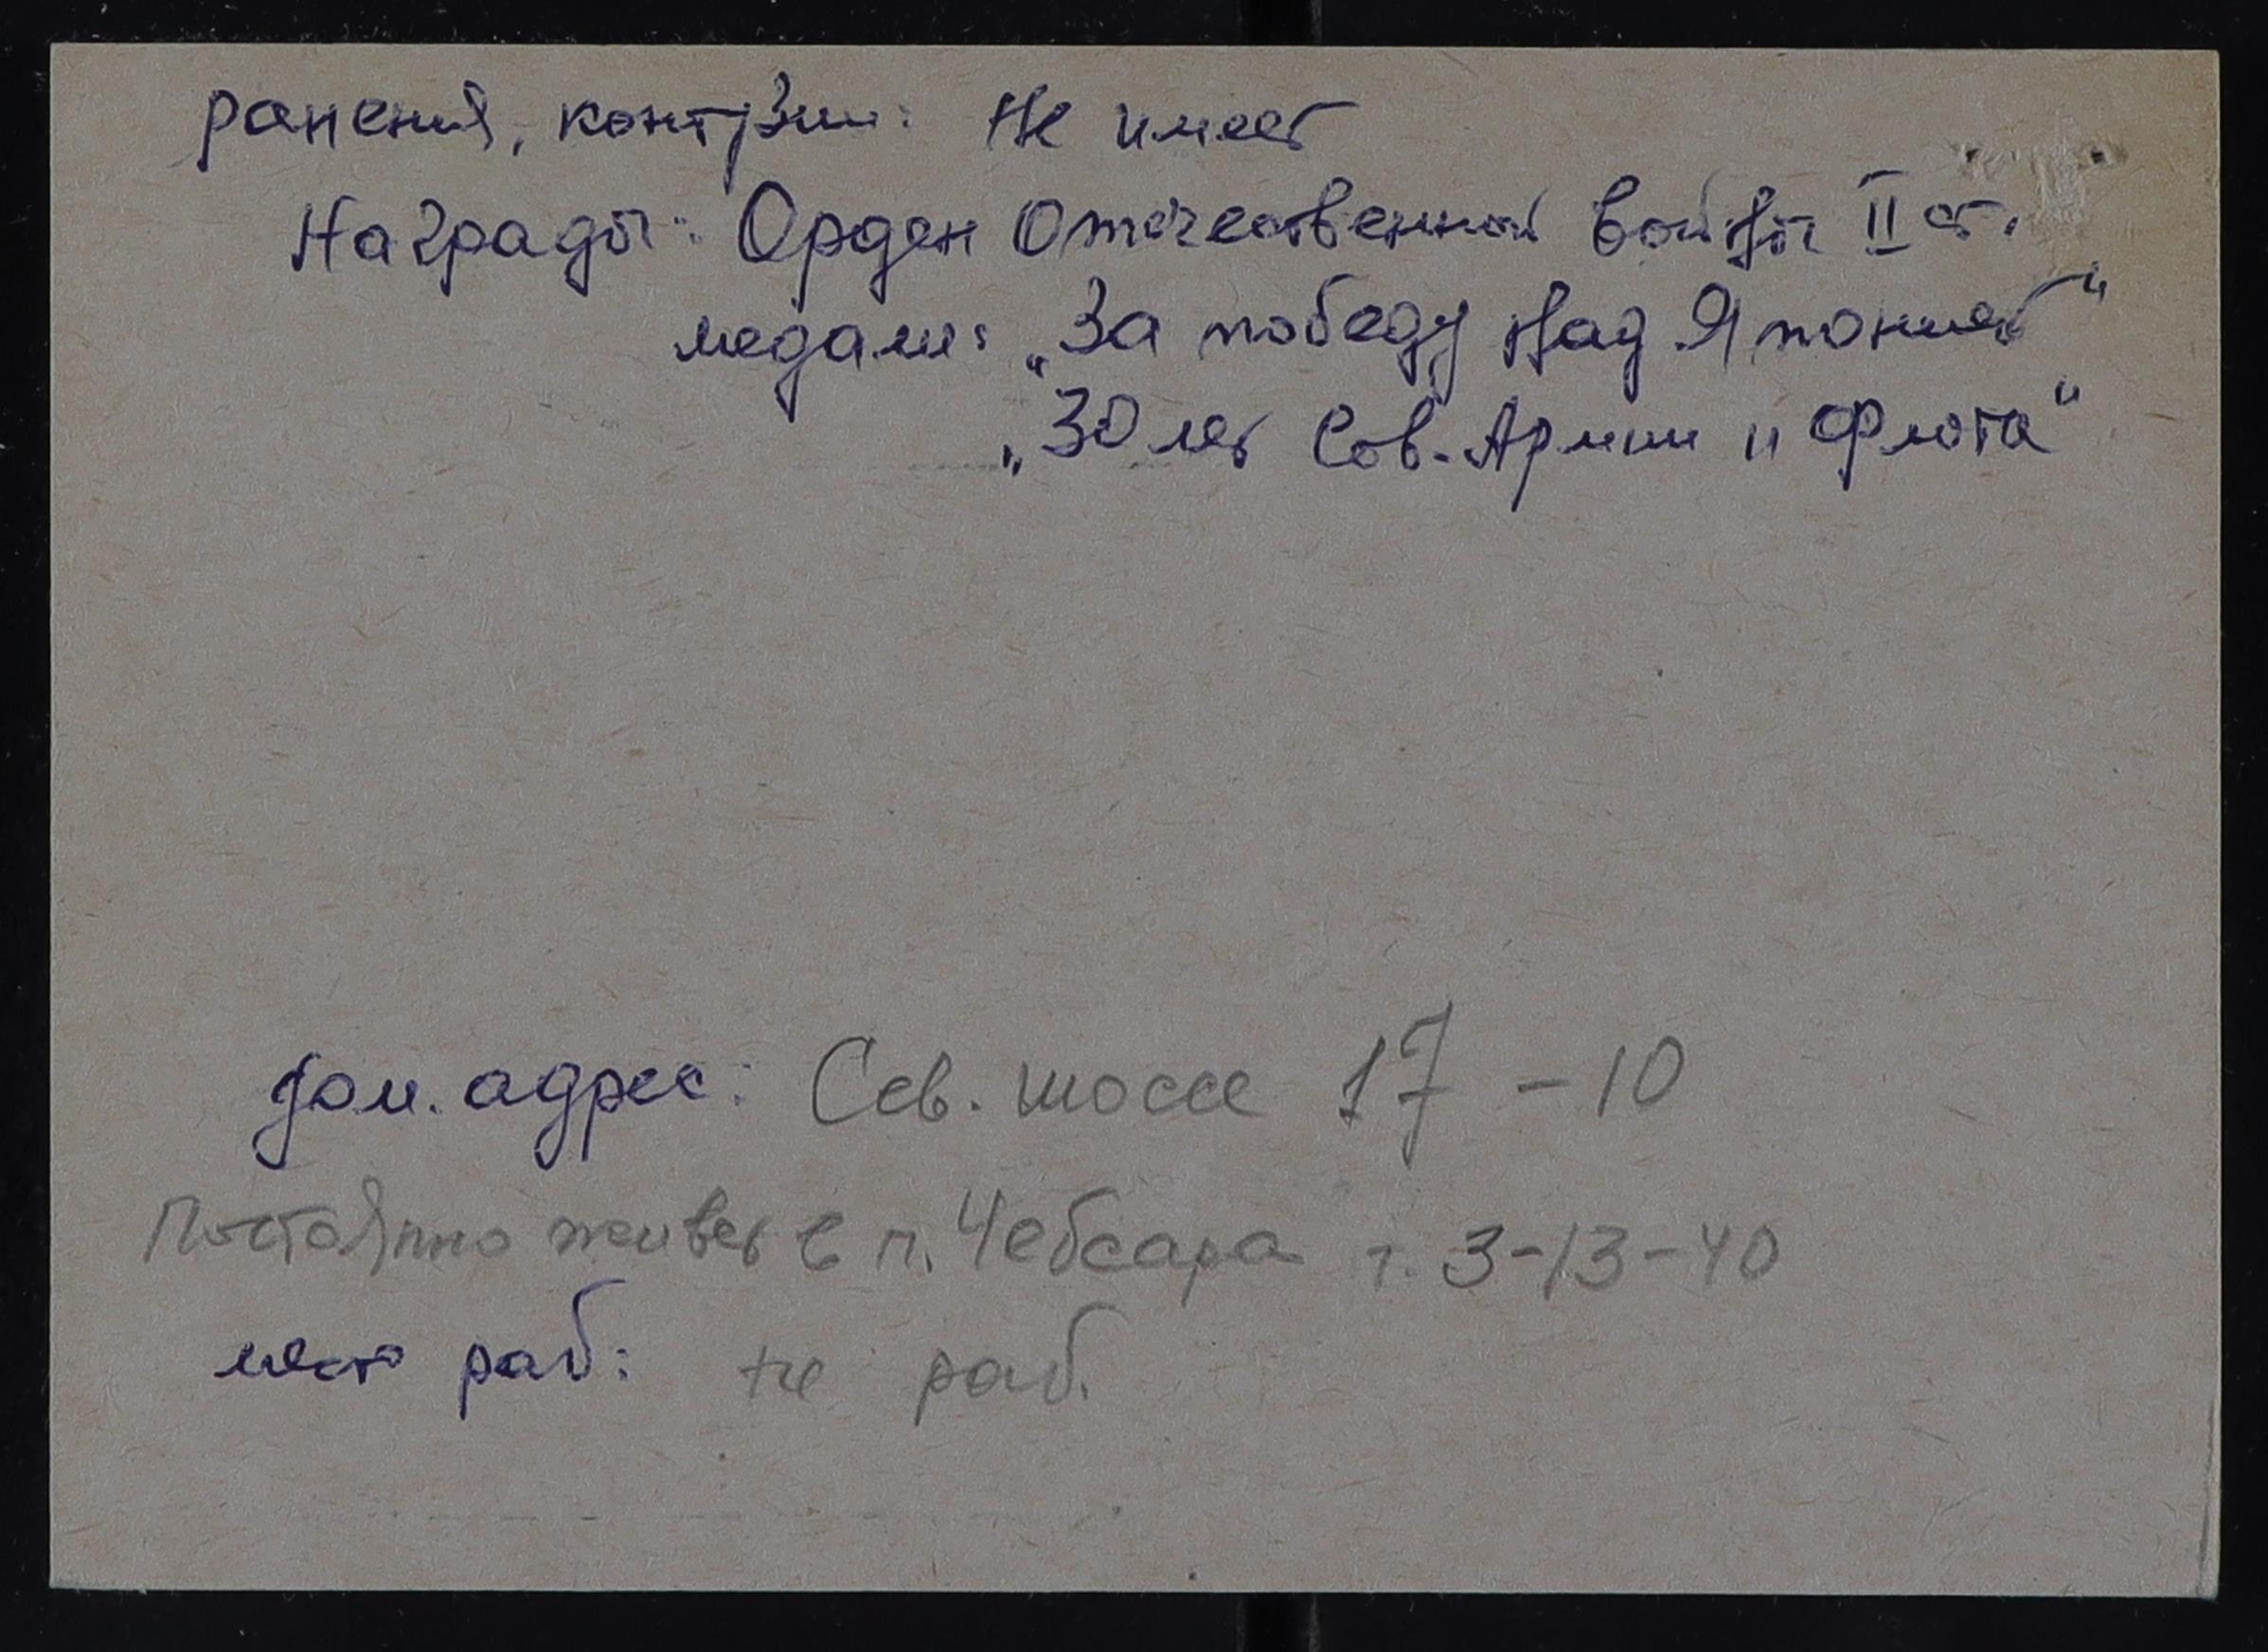 ранения, контузии: Не имеет
Награды: Орден Отечественной войны II ст.
медали: „За победу над Японией"
„30 лет Сов. Армии и Флота"
дом. адрес: Сев. шоссе 17 - 10
Постоянно живет в п. Чебсара т. 3-13-40
место раб: не раб.